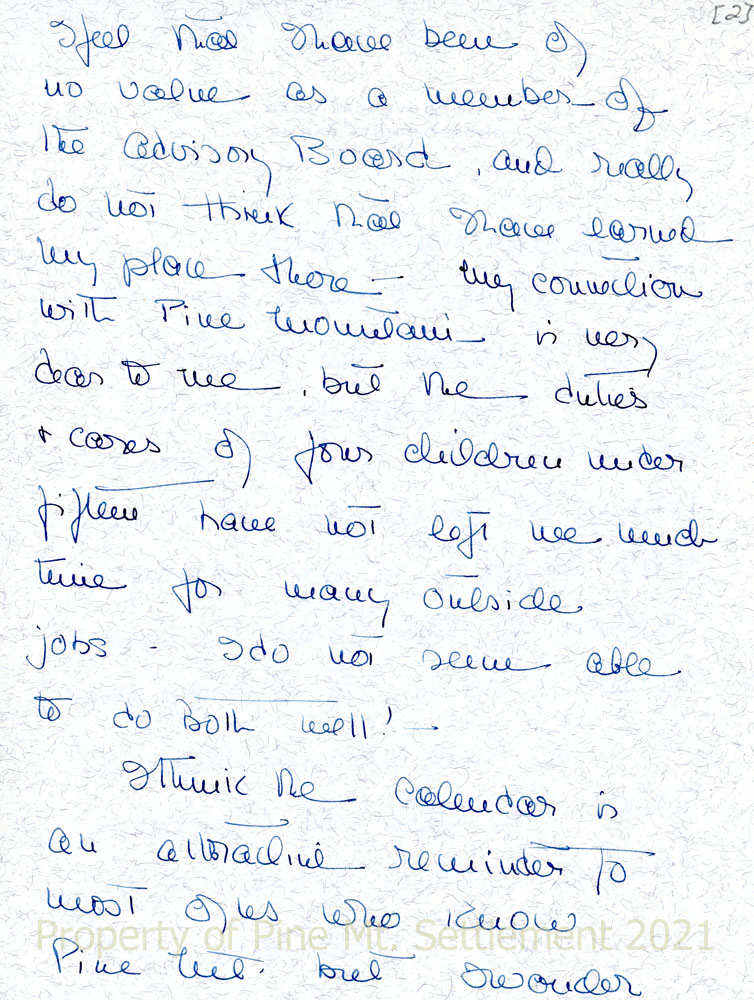 [2]
I feel that I have been of
no value as a member of
the Advisory Board, and really
do not think that I have earned
my place there - my connection
with Pine Mountain is very
dear to me, but the duties
+ cares of four children under
fifteen have not left me much
time for many outside
jobs - I do not seem able
to do both well! -
I think the calendar is
an attractive reminder to
most of us who know
Property of Pine Mt. Settlement 2021
Pine Mt. but I wonder